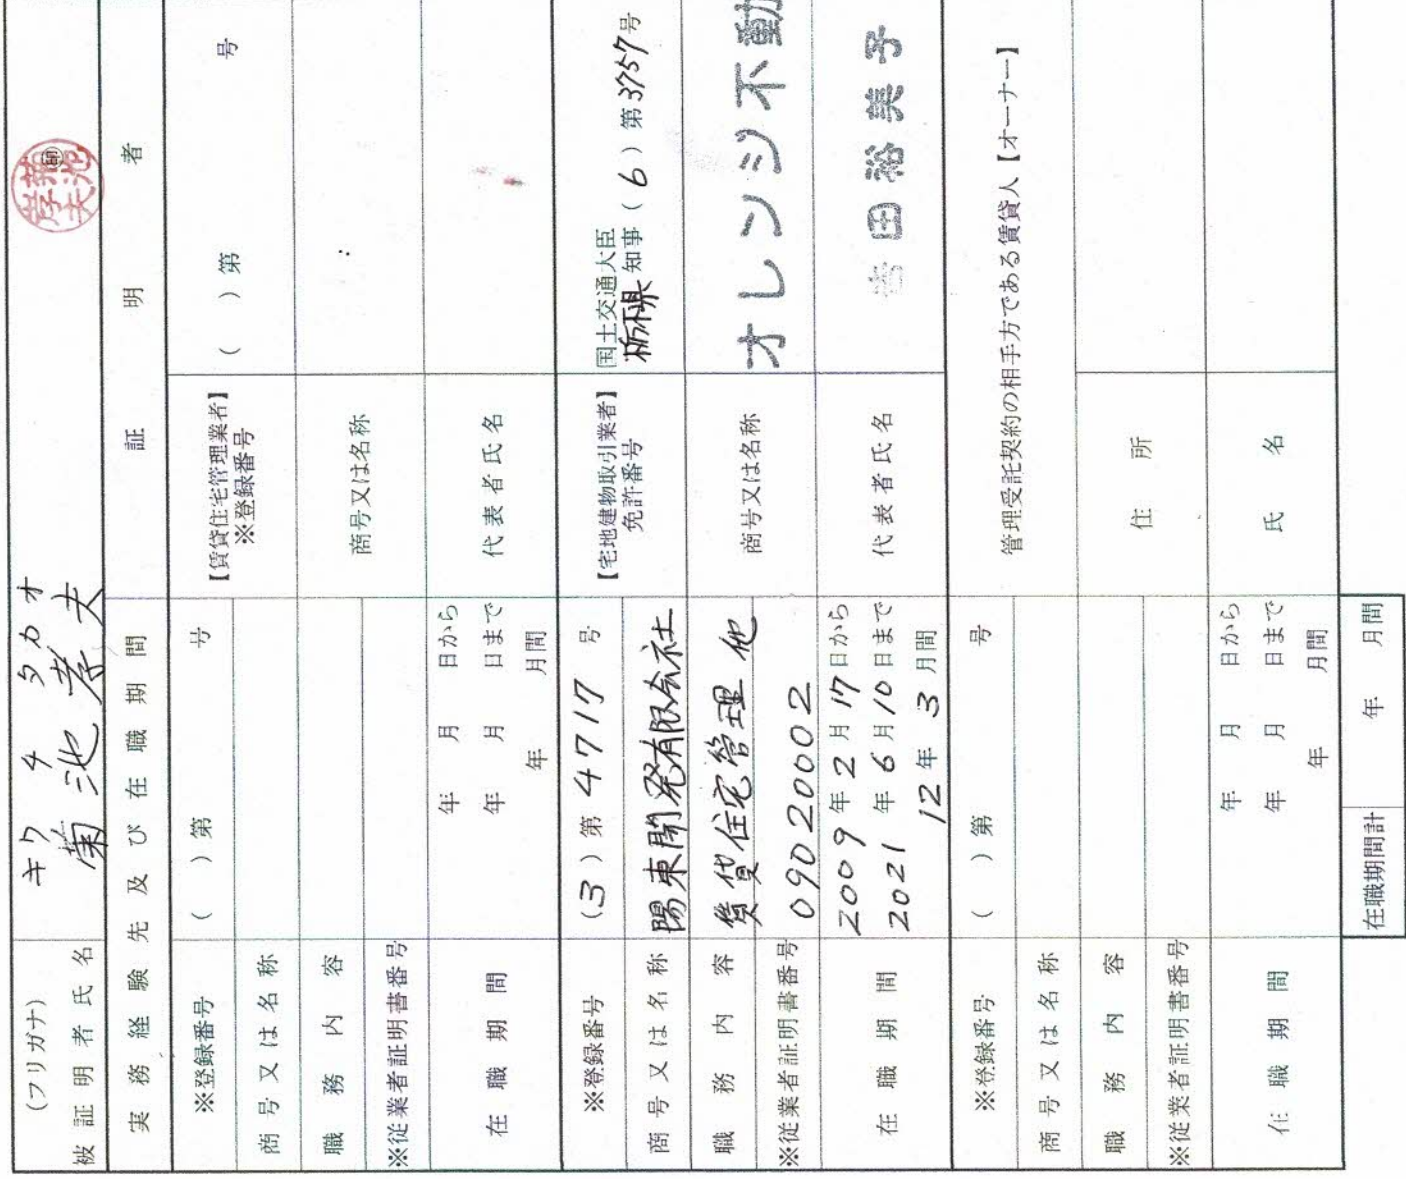 (フリガナ) キクチ タカオ
被証明者氏名 菊池孝夫 ㊞
実務経験先及び在職期間 証明者
※登録番号 ( )第 号 【賃貸住宅管理業者】 ※登録番号 ( )第 号
商号又は名称 商号又は名称
職務内容
※従業者証明書番号 代表者氏名
在職期間 年 月 日から
年 月 日まで
年 月間
※登録番号 (3)第4717号 【宅地建物取引業者】 免許番号 国土交通大臣
栃木県知事(6)第3757号
商号又は名称 陽東開発有限会社 商号又は名称 オレンジ不動
職務内容 賃貸住宅管理 他
※従業者証明書番号 09020002 代表者氏名 田裕美子
在職期間 2009年2月17日から
2021年6月10日まで
12年3月間
※登録番号 ( )第 号 管理受託契約の相手方である賃貸人【オーナー】
商号又は名称
職務内容 住所
※従業者証明書番号
在職期間 年 月 日から 氏名
年 月 日まで
年 月間
在職期間計 年 月間